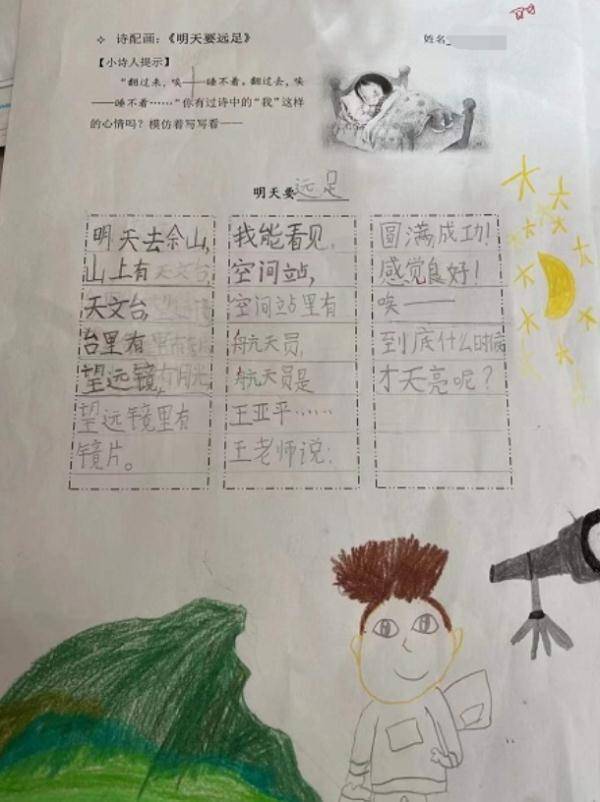 诗配画:《明天要远足》
姓名
【小诗人提示】
“翻过来,唉——睡不着,翻过去,唉
——睡不着……”你有过诗中的“我”这样
的心情吗?模仿着写写看——
明天要远足
明天去佘山,
山上有天文台,
天文台,
台里有
望远镜,
望远镜里有
镜片。
我能看见,
空间站,
空间站里有
航天员,
航天员是
王亚平……
王老师说:
圆满成功!
感觉良好!
唉——
到底什么时候
才天亮呢?